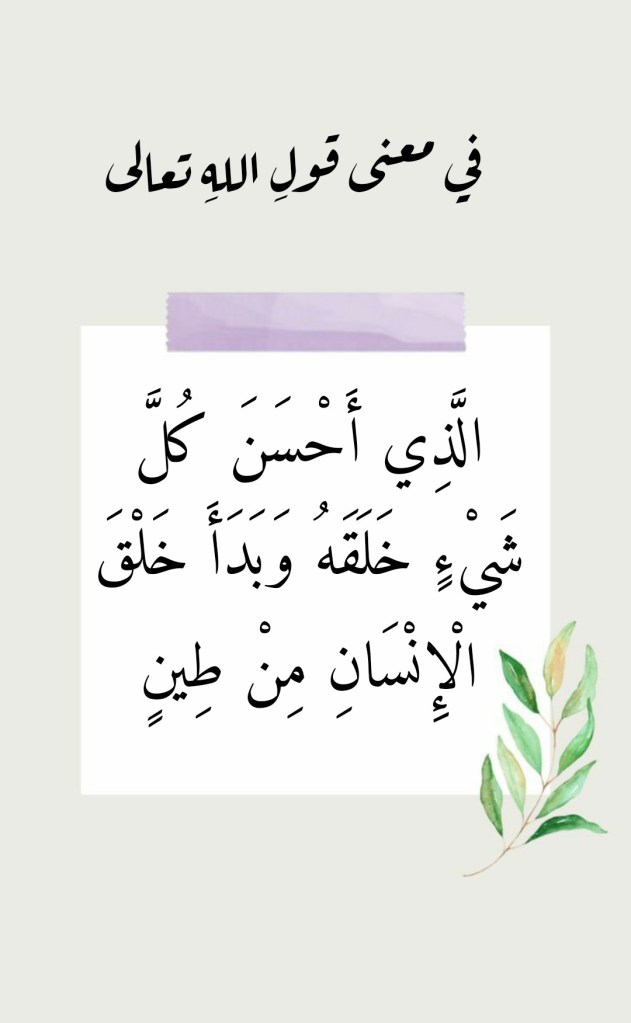 في معنى قولِ اللهِ تعالى
الَّذِي أَحْسَنَ كُلَّ
شَيْءٍ خَلَقَهُ وَبَدَأَ خَلْقَ
الْإِنْسَانِ مِنْ طِينٍ